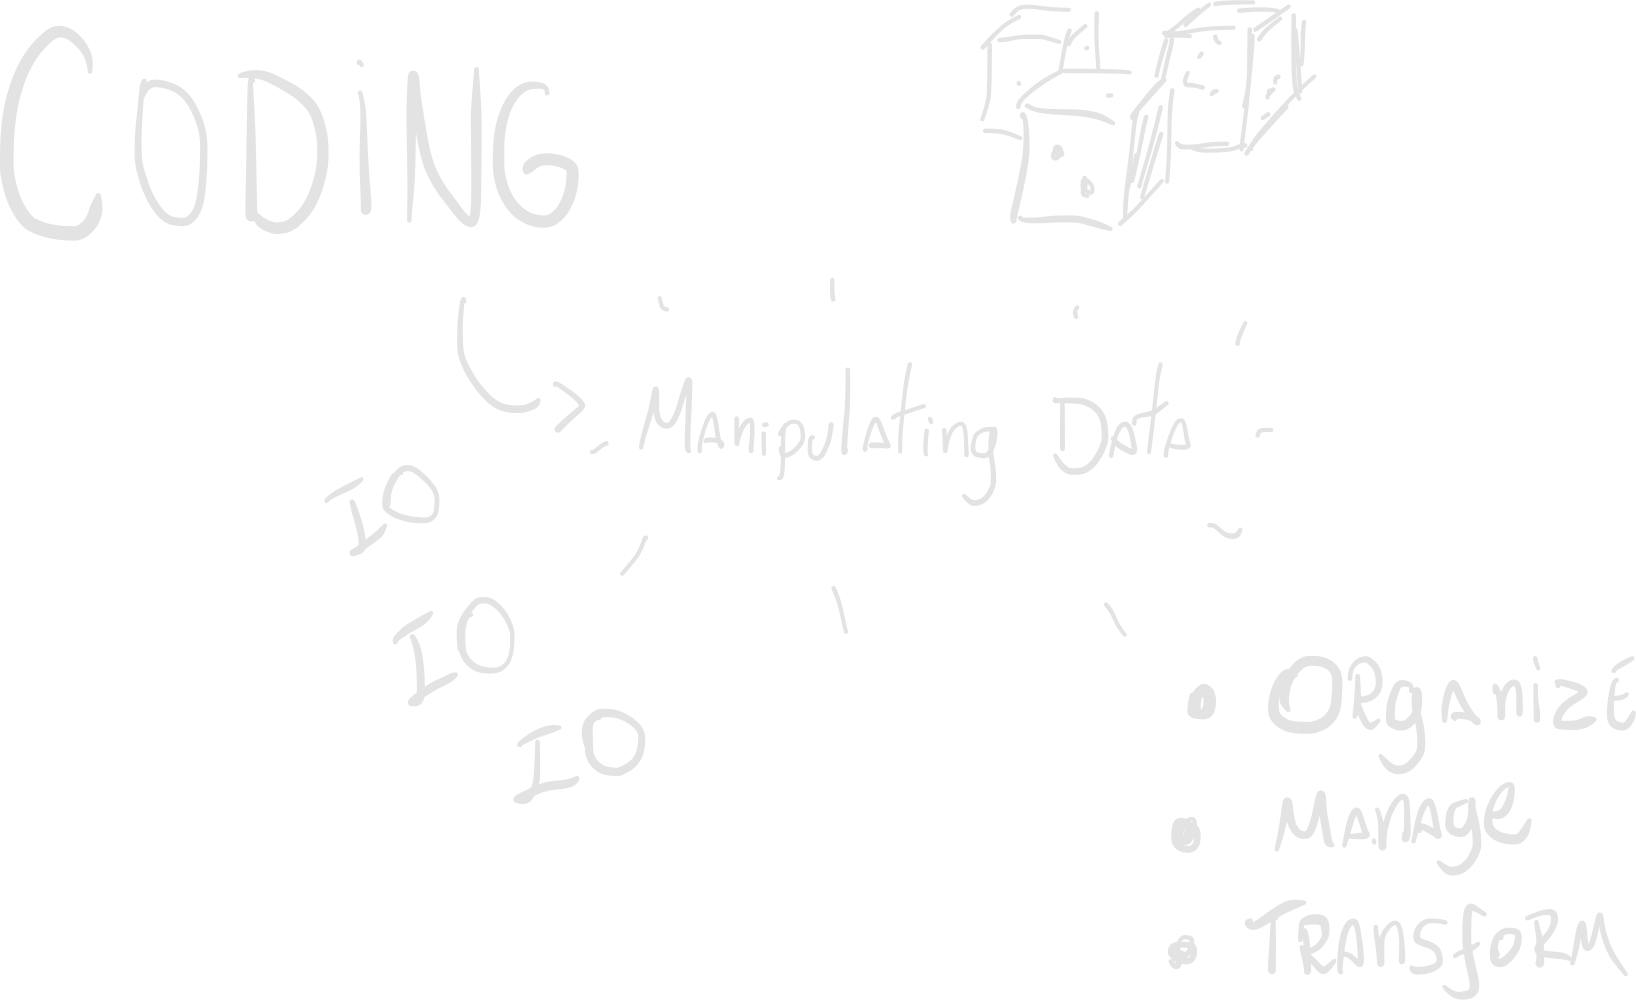 CODING
Manipulating Data
IO
IO
IO
• ORganizE
• Manage
• TRansfoRM